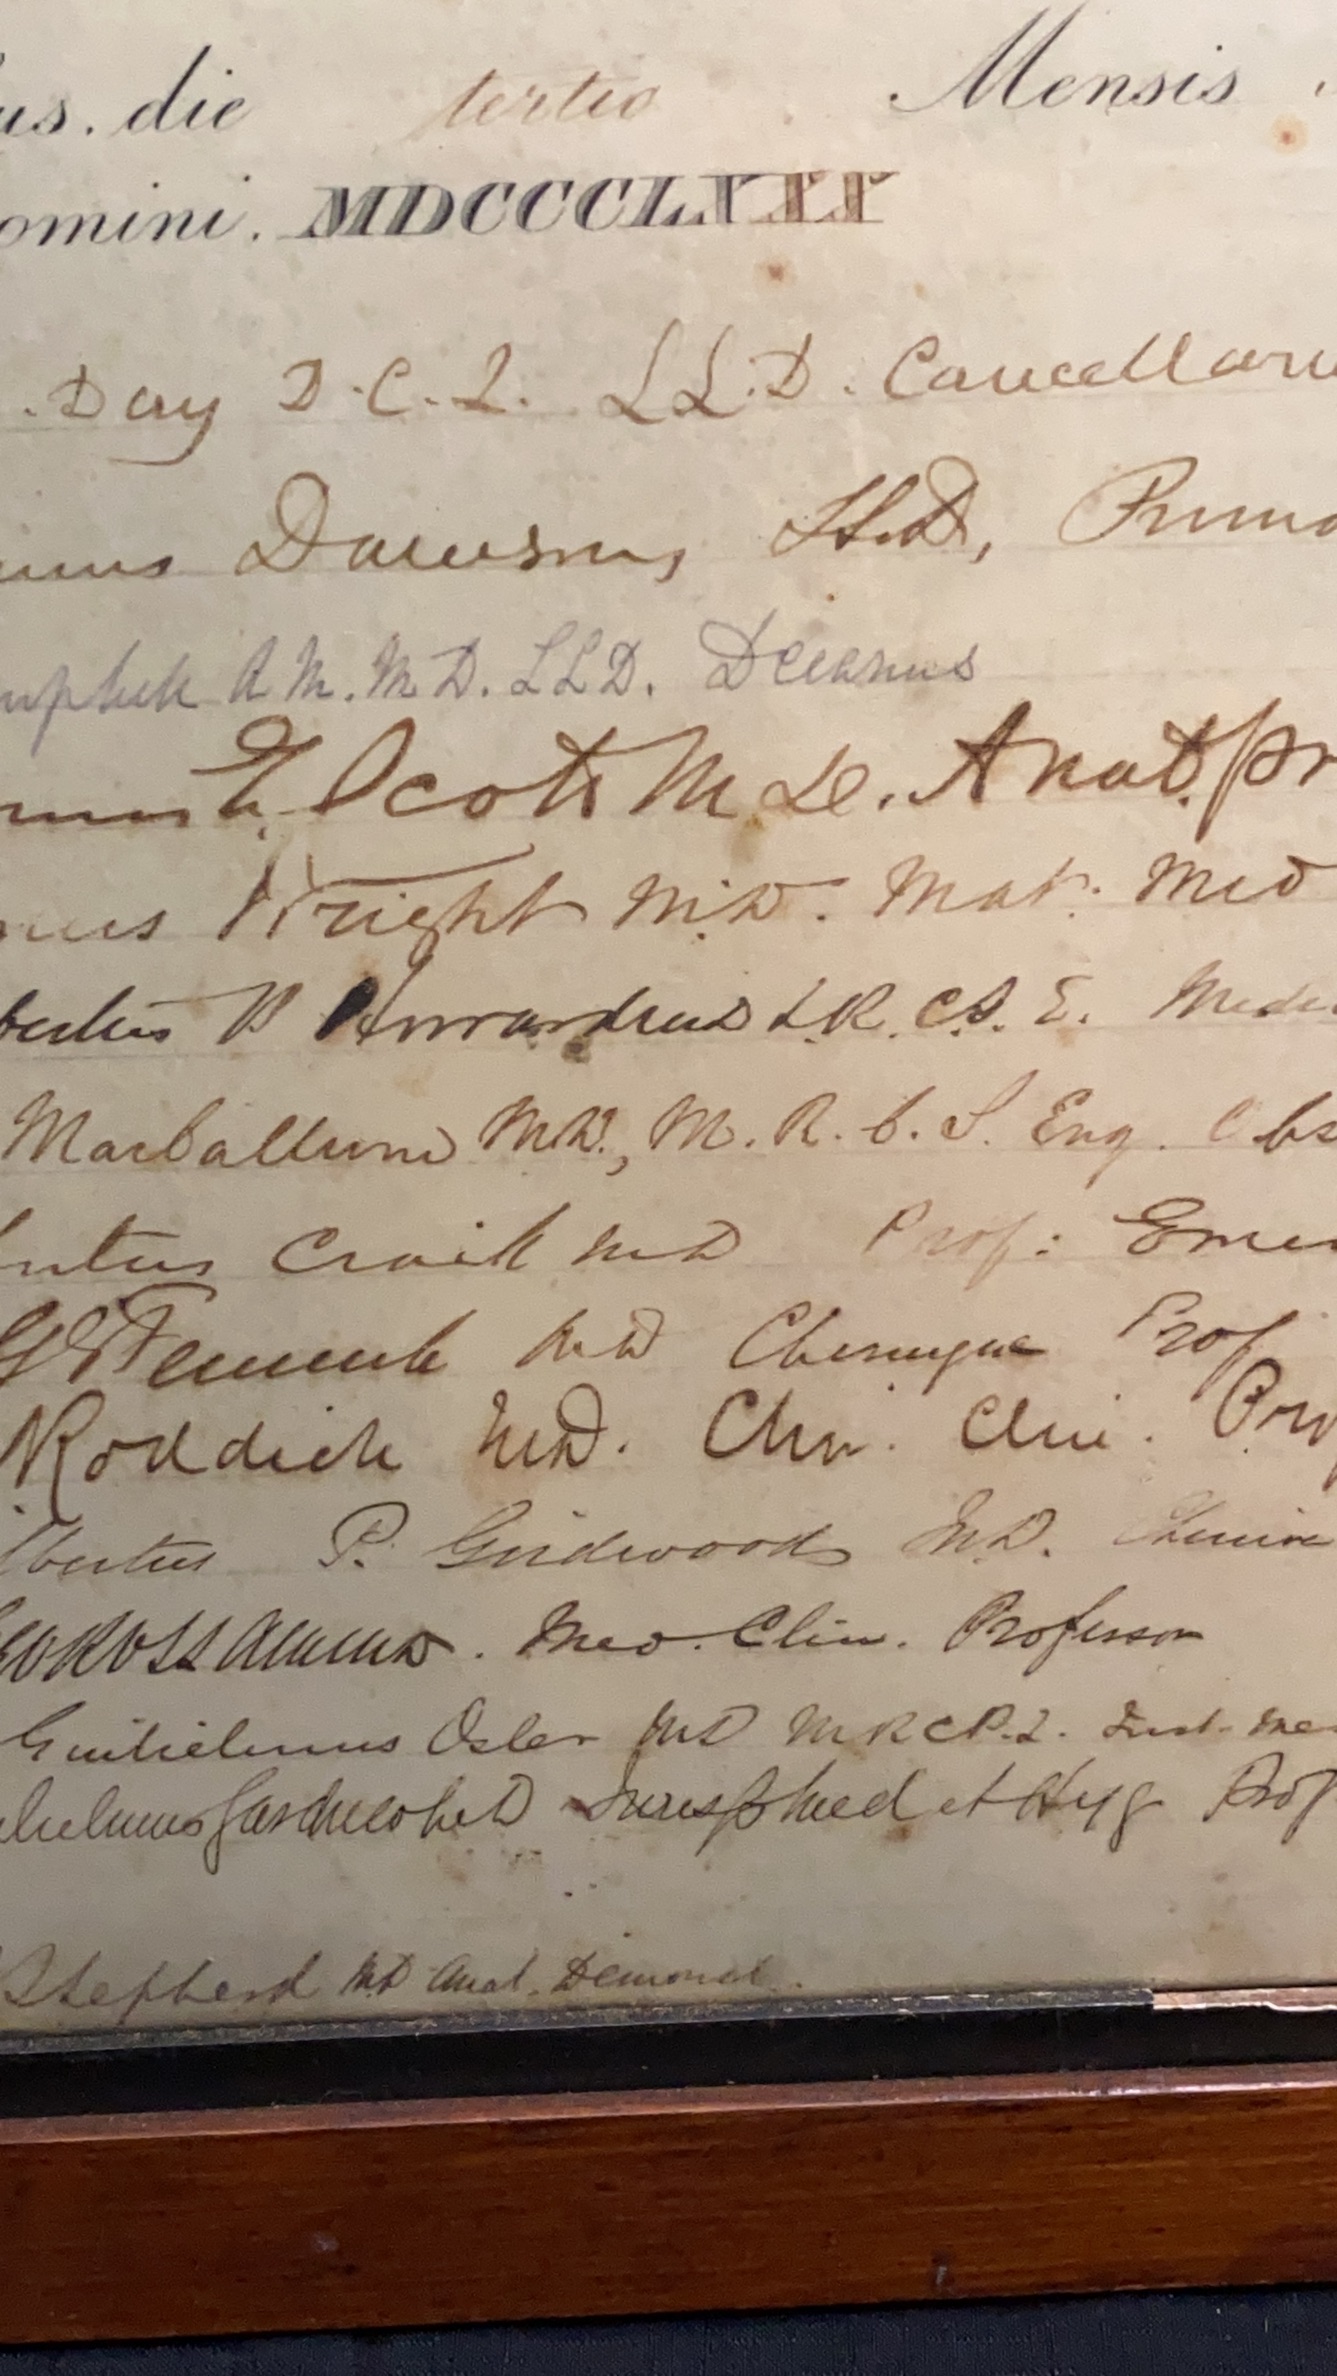 us. die tertio Mensis
omini. MDCCCLXXX
. Day D.C.L. LL.D. Cancellariu
Dawson, LL.D, Prima
mpbell A M. M D. LLD. Decanus
E. Scott M D. Anat. pr
Wright M.D. Mat: Med
bertus P Howard M D L.R.C.S. E. Medi
MacCallum MD., M.R.C.S. Eng. Obs
bertus Craik M D Prof: Emer
G E Fenwick M D Chirurgiae Prof
Roddick M.D. Chir. Clin. Pro
lbertus P. Girdwood M.D. Chemiae
Geo Ross AM MD. Med. Clin. Professor
Guilielmus Osler MD MRCP.L. Inst. Me
lielmus Gardner MD Juris p Med et Hyg Prof
Shepherd MD Anat. Demonst.